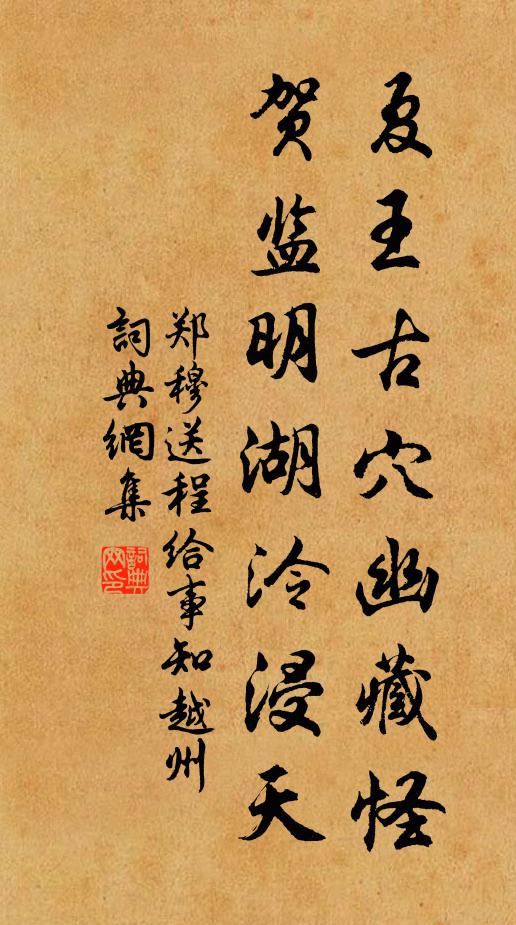 夏王古穴幽藏怪
贺监明湖泠浸天
郑穆送程给事知越州
詞典網集
詞典網印